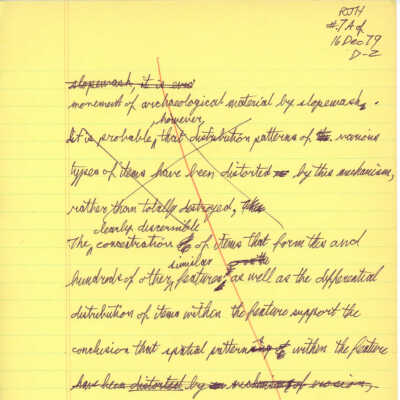 RJH
#7A of
16 Dec 79
D-2
slopewash, it is even
movement of archaeological material by slopewash.
however,
It is probable, that distribution patterns of the various
types of items have been distorted by this mechanism,
rather than totally destroyed,
clearly discernible
The concentration of of items that form this and
similar
hundreds of other features, as well as the differential
distribution of items within the feature support the
conclusion that spatial patterning of within the feature
has been distorted by mechanism of erosion,